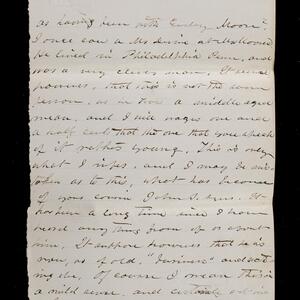 as having been with Moon.
I once saw a Mr
He lived in Philadelphia Penn, and
was a very clever man.
however, that this is not the same
person, as he was a middle aged
man, and I will wager one and
a half cents that the one that you speak
of is rather young. This is only
what I infer, and I may be mis-
taken as to this, what has become
of your cousin John I. It
has been a long time since I have
heard anything from of or about
him. I suppose however that he is
now, as of old, "
Of course I mean this in
a mild sense, and